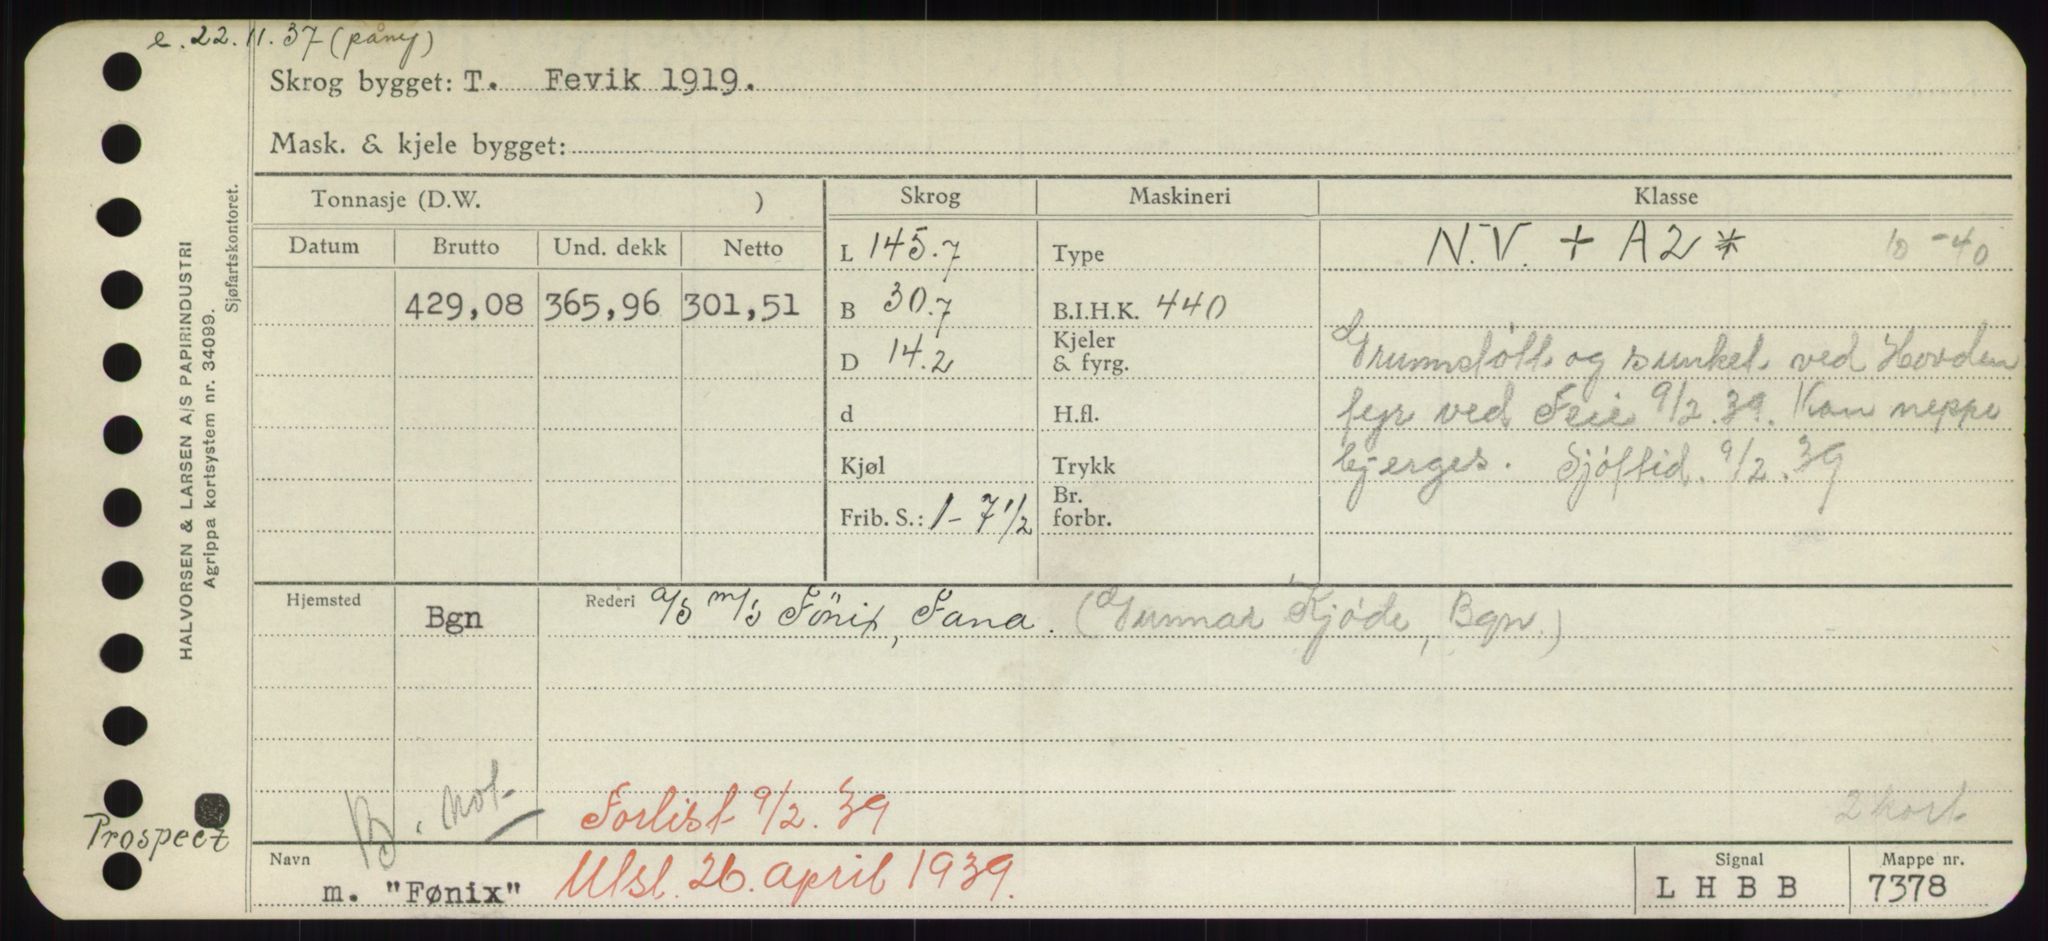 e. 22.11.37 (påny)
Skrog bygget: T. Fevik 1919.
Mask. & kjele bygget:
HALVORSEN & LARSEN A/S PAPIRINDUSTRI
Agrippa kortsystem nr. 34099.
Sjøfartskontoret.
Tonnasje (D.W. ) Skrog Maskineri Klasse
Datum Brutto Und. dekk Netto
L 145.7 Type N.V. + A2 * 10 -40
429,08 365,96 301,51 B 30.7 B.I.H.K. 440
D 14.2 Kjeler & fyrg. Grunnstøtt og sunket ved Hovden
d H.fl. fyr ved Feie 9/2.39. Kan neppe
Kjøl Trykk bjerges. Sjøftid. 9/2.39
Frib. S.: 1-7 1/2 Br. forbr.
Hjemsted Bgn Rederi A/S M/S Fønix, Fana. (Gunnar Kjøde, Bgn.)
B. not.
Forlist 9/2.39
2 kort
Prospect
Navn m. "Fønix" Utsl. 26. april 1939.
Signal LHBB
Mappe nr. 7378